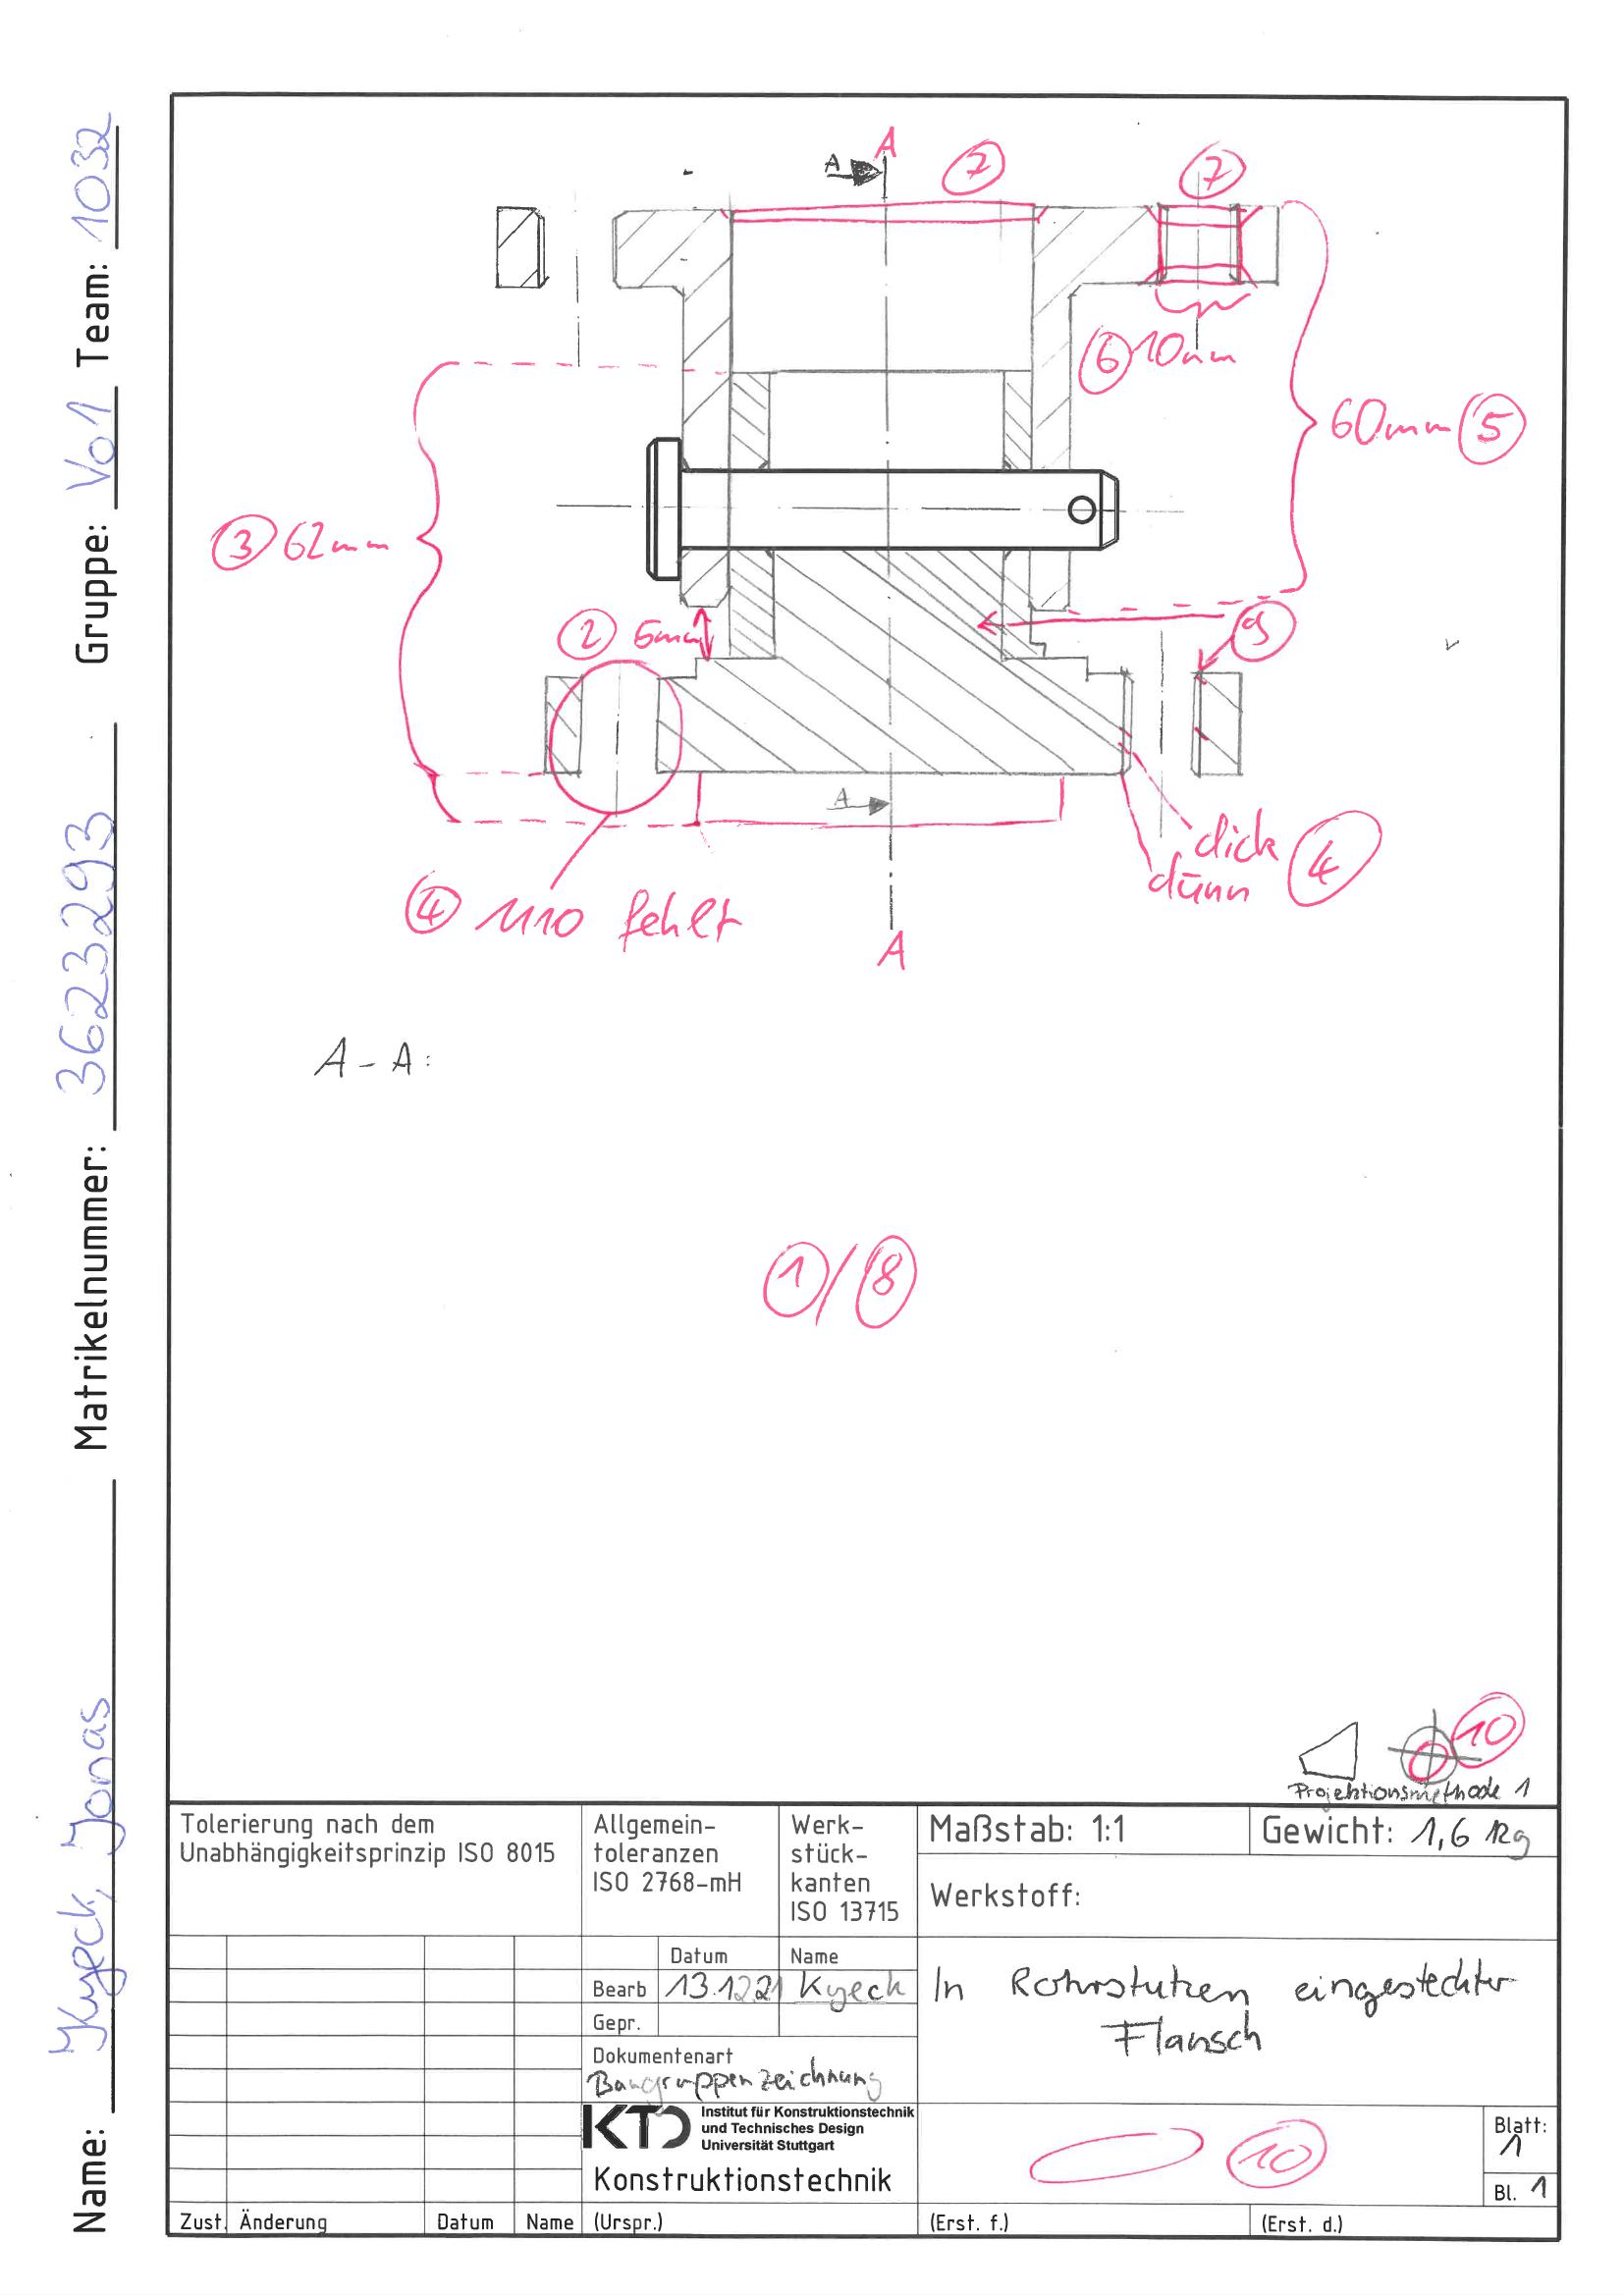 Name: Kyeck, Jonas Matrikelnummer: 3623293 Gruppe: Vo1 Team: 1032
A
A
7
7
6 10mm
60mm 5
3 62mm
2 6mm
9
A
dick
dünn
4
4 M10 fehlt
A
A-A:
1/8
10
Projektionsmethode 1
Tolerierung nach dem
Unabhängigkeitsprinzip ISO 8015
Allgemein-
toleranzen
ISO 2768-mH
Werk-
stück-
kanten
ISO 13715
Maßstab: 1:1
Gewicht: 1,6 kg
Werkstoff:
Datum Name
Bearb 13.12.21 Kyeck
Gepr.
In Rohrstutzen eingesteckter
Flansch
Dokumentenart
Baugruppenzeichnung
KTD
Institut für Konstruktionstechnik
und Technisches Design
Universität Stuttgart
Konstruktionstechnik
10
Blatt:
1
Bl. 1
Zust. Änderung Datum Name (Urspr.) (Erst. f.) (Erst. d.)